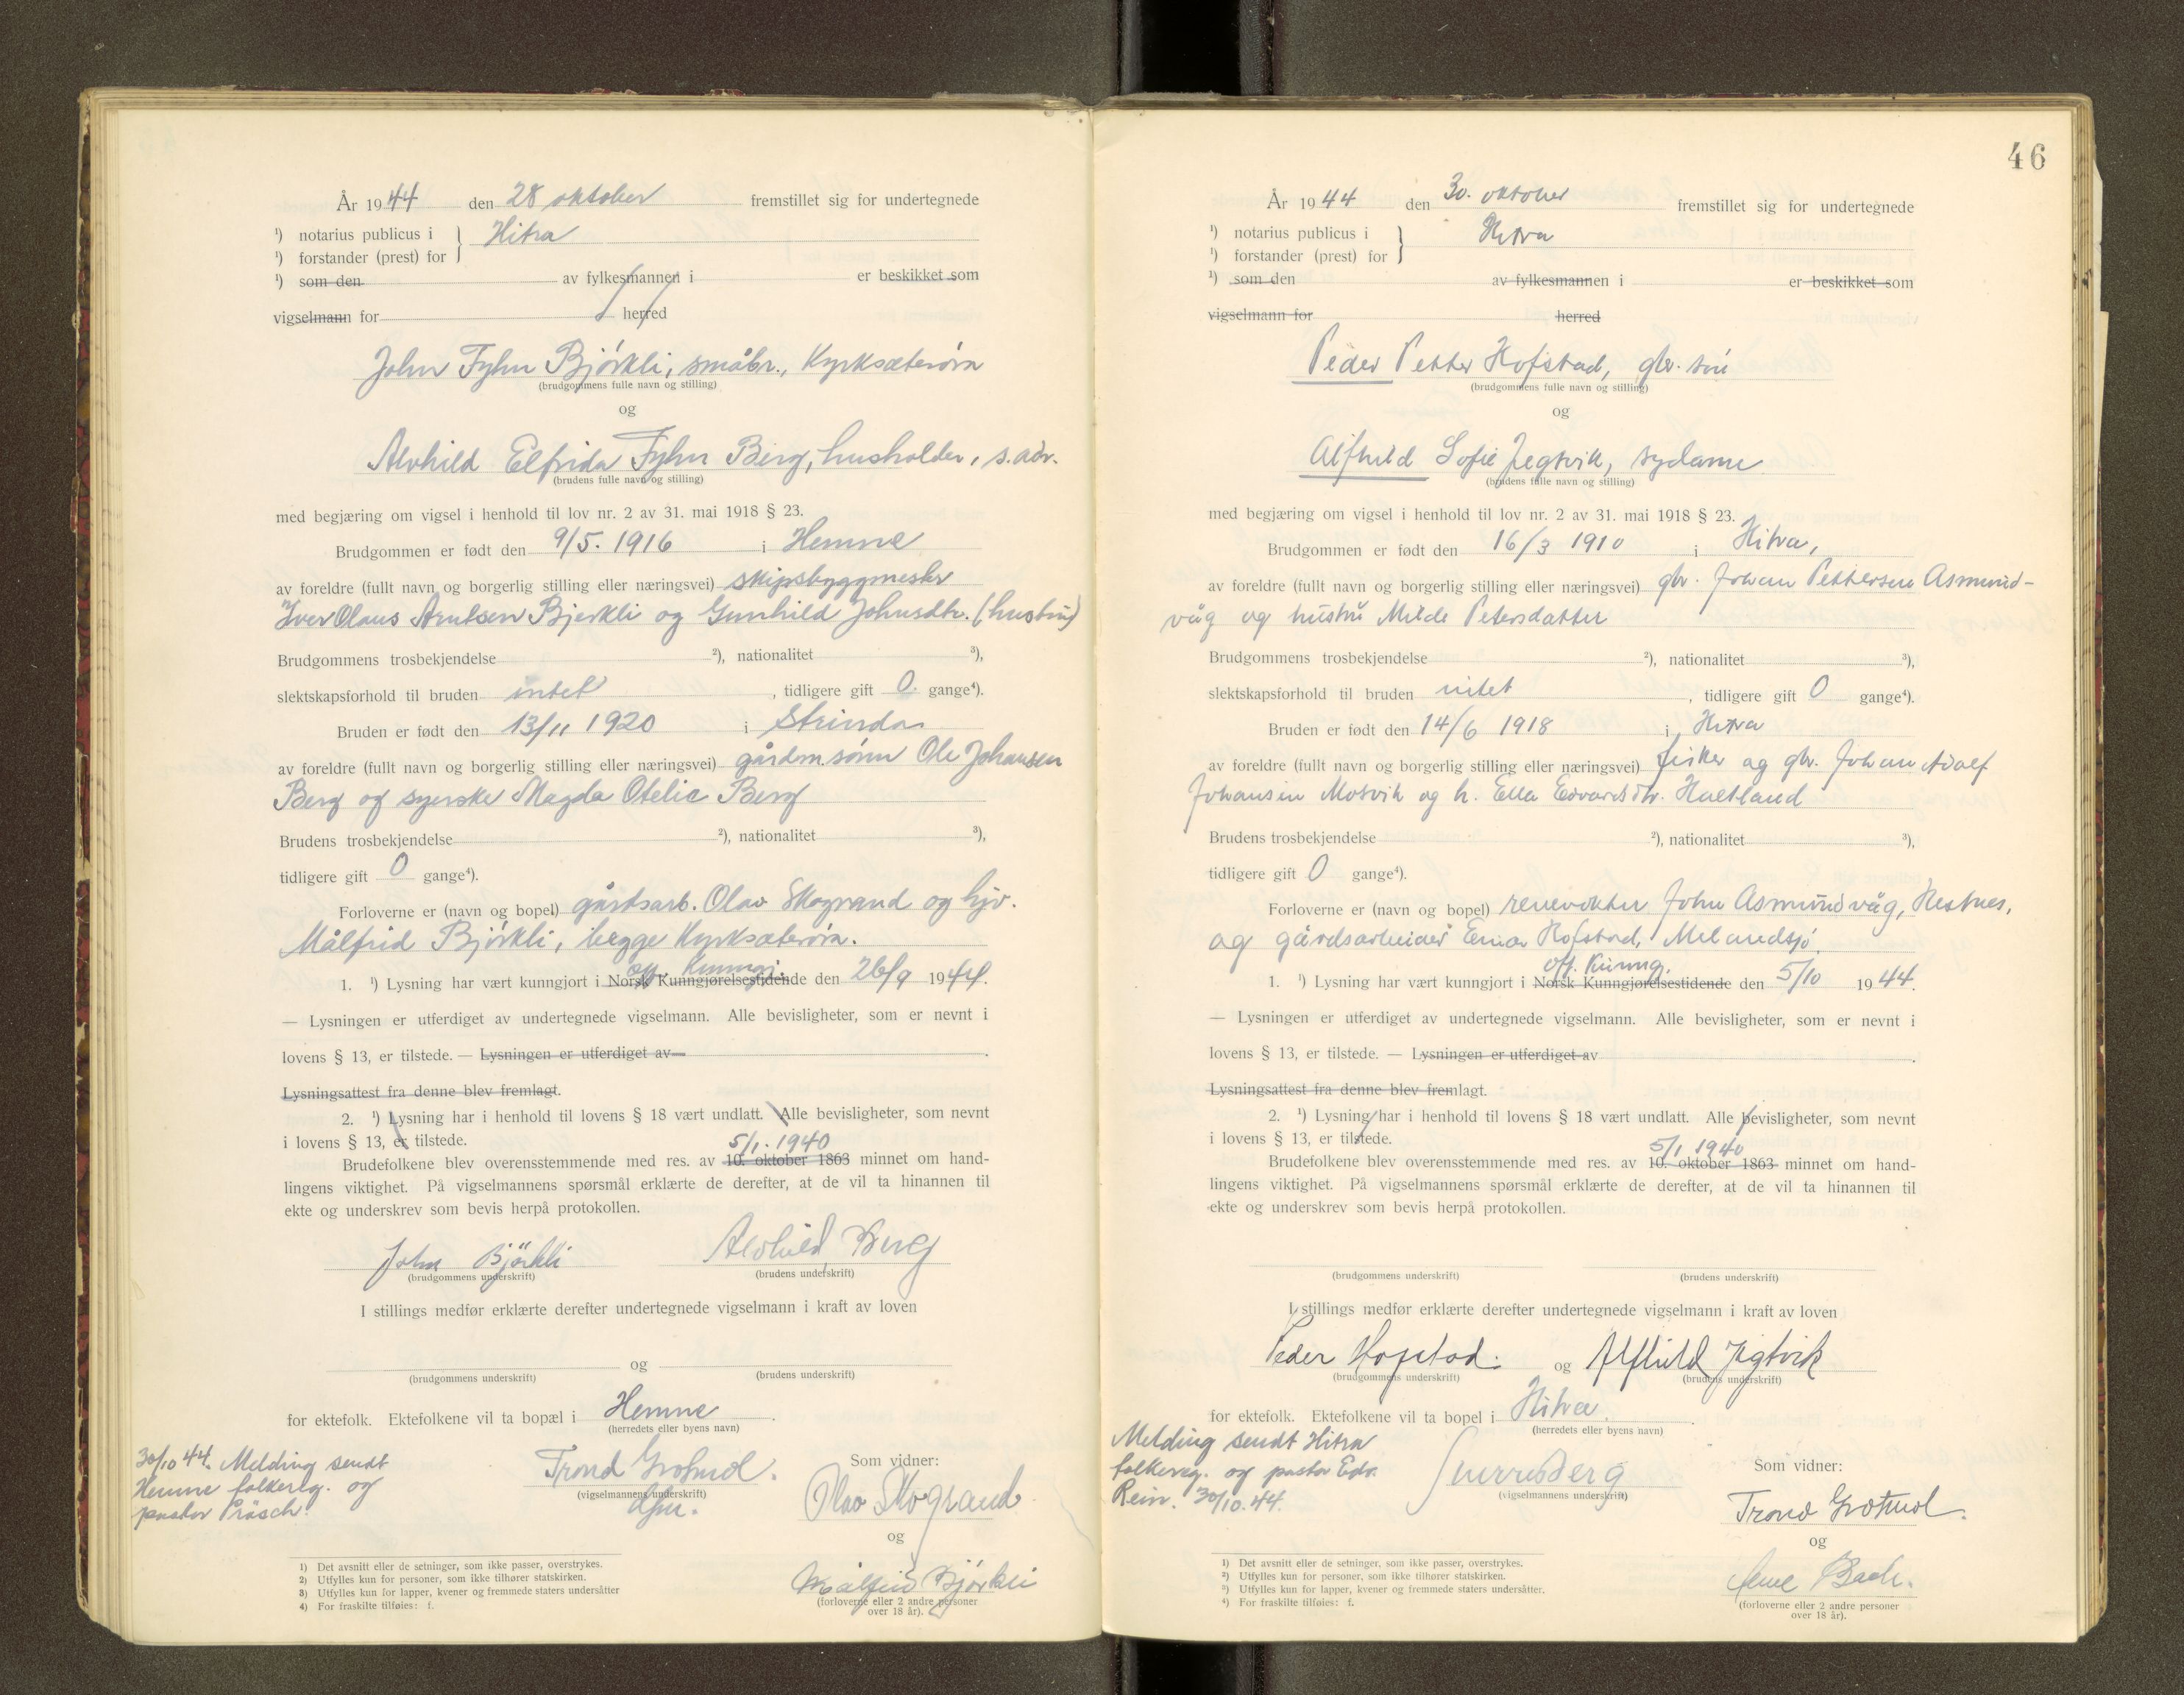 År 1944 den 28 oktober fremstillet sig for undertegnede
¹) notarius publicus i } Hitra
¹) forstander (prest) for
¹) som den av fylkesmannen i er beskikket som
vigselmann for herred
John Fyhn Bjørkli, småbr., Kyrksæterøra
(brudgommens fulle navn og stilling)
og
Alvhild Elfrida Fyhn Berg, husholder, s. adr.
(brudens fulle navn og stilling)
med begjæring om vigsel i henhold til lov nr. 2 av 31. mai 1918 § 23.
Brudgommen er født den 9/5. 1916 i Hemne
av foreldre (fullt navn og borgerlig stilling eller næringsvei) skipsbyggmester
Iver Olaus Arntsen Bjerkli og Gunhild Johnsdtr. (hustru)
Brudgommens trosbekjendelse ²), nationalitet ³),
slektskapsforhold til bruden intet , tidligere gift 0 gange⁴).
Bruden er født den 13/11 1920 i Strinda
av foreldre (fullt navn og borgerlig stilling eller næringsvei) gårdm.sønn Ole Johansen
Berg og syerske Magda Otelie Berg
Brudens trosbekjendelse ²), nationalitet ³),
tidligere gift 0 gange⁴).
Forloverne er (navn og bopel) gårdsarb. Olav Skogrand og hjv.
Målfrid Bjørkli, begge Kyrksæterøra.
off. Kunngj.
1. ¹) Lysning har vært kunngjort i Norsk Kunngjørelsestidende den 26/9 1944.
— Lysningen er utferdiget av undertegnede vigselmann. Alle bevisligheter, som er nevnt i
lovens § 13, er tilstede. — Lysningen er utferdiget av .
Lysningsattest fra denne blev fremlagt.
2. ¹) Lysning har i henhold til lovens § 18 vært undlatt. Alle bevisligheter, som nevnt
i lovens § 13, er tilstede.
5/1. 1940
Brudefolkene blev overensstemmende med res. av 10. oktober 1863 minnet om hand-
lingens viktighet. På vigselmannens spørsmål erklærte de derefter, at de vil ta hinannen til
ekte og underskrev som bevis herpå protokollen.
John Björkli Alvhild Berg
(brudgommens underskrift) (brudens underskrift)
I stillings medfør erklærte derefter undertegnede vigselmann i kraft av loven
og
(brudgommens underskrift) (brudens underskrift)
for ektefolk. Ektefolkene vil ta bopæl i Hemne .
(herredets eller byens navn)
30/10 44. Melding sendt
Hemne folkereg. og
pastor Präsch.
Trond Grøtnol.
(vigselmannens underskrift)
Som vidner:
Olav Skogrand
og
Målfrid Bjørkli
(forloverne eller 2 andre personer
over 18 år).
1) Det avsnitt eller de setninger, som ikke passer, overstrykes.
2) Utfylles kun for personer, som ikke tilhører statskirken.
3) Utfylles kun for lapper, kvener og fremmede staters undersåtter
4) For fraskilte tilføies: f.
46
År 1944 den 30. oktober fremstillet sig for undertegnede
¹) notarius publicus i } Hitra
¹) forstander (prest) for
¹) som den av fylkesmannen i er beskikket som
vigselmann for herred
Peder Petter Hofstad, gbr. søn
(brudgommens fulle navn og stilling)
og
Alfhild Sofie Jegtvik, sydame
(brudens fulle navn og stilling)
med begjæring om vigsel i henhold til lov nr. 2 av 31. mai 1918 § 23.
Brudgommen er født den 16/3 1910 i Hitra,
av foreldre (fullt navn og borgerlig stilling eller næringsvei) gbr. Johan Pettersen Asmund-
våg og hustru Milde Petersdatter
Brudgommens trosbekjendelse ²), nationalitet ³),
slektskapsforhold til bruden intet , tidligere gift 0 gange⁴).
Bruden er født den 14/6 1918 i Hitra
av foreldre (fullt navn og borgerlig stilling eller næringsvei) fisker og gbr. Johan Adolf
Johansen Mosvik og h. Ella Edvardsdtr. Haltland
Brudens trosbekjendelse ²), nationalitet ³),
tidligere gift 0 gange⁴).
Forloverne er (navn og bopel) revevokter John Asmundvåg, Hestnes,
og gårdsarbeider Einar Hofstad, Melandsjø.
off. Kunng.
1. ¹) Lysning har vært kunngjort i Norsk Kunngjørelsestidende den 5/10 1944.
— Lysningen er utferdiget av undertegnede vigselmann. Alle bevisligheter, som er nevnt i
lovens § 13, er tilstede. — Lysningen er utferdiget av .
Lysningsattest fra denne blev fremlagt.
2. ¹) Lysning har i henhold til lovens § 18 vært undlatt. Alle bevisligheter, som nevnt
i lovens § 13, er tilstede.
5/1 1940
Brudefolkene blev overensstemmende med res. av 10. oktober 1863 minnet om hand-
lingens viktighet. På vigselmannens spørsmål erklærte de derefter, at de vil ta hinannen til
ekte og underskrev som bevis herpå protokollen.
(brudgommens underskrift) (brudens underskrift)
I stillings medfør erklærte derefter undertegnede vigselmann i kraft av loven
Peder Hofstad. og Alfhild Jegtvik
(brudgommens underskrift) (brudens underskrift)
for ektefolk. Ektefolkene vil ta bopel i Hitra. .
(herredets eller byens navn)
Melding sendt Hitra
folkereg. og pastor Edv.
Rein. 30/10.44.
(vigselmannens underskrift)
Som vidner:
Trond Grøtnol.
og
Bach.
(forloverne eller 2 andre personer
over 18 år).
¹) Det avsnitt eller de setninger, som ikke passer, overstrykes.
²) Utfylles kun for personer, som ikke tilhører statskirken.
³) Utfylles kun for lapper, kvener og fremmede staters undersåtter.
⁴) For fraskilte tilføies: f.